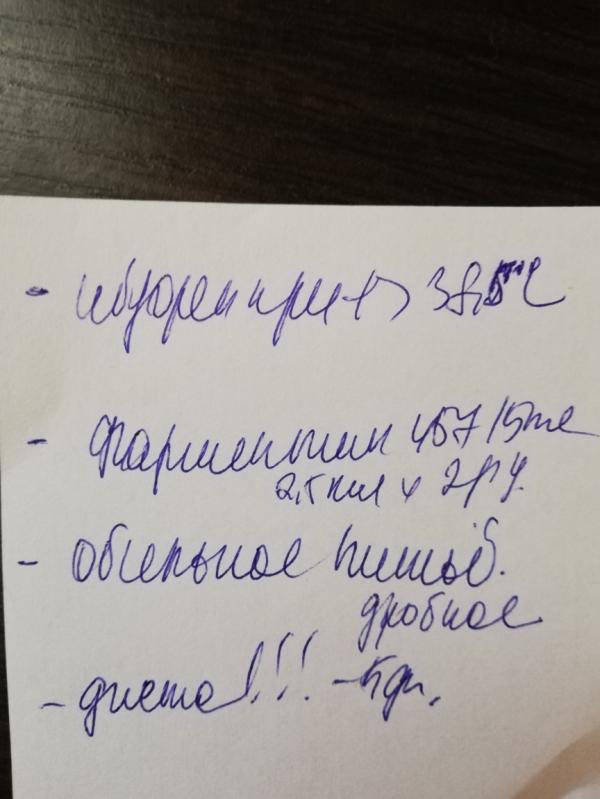 - ибуфен при t > 38,5°C
- Фарментин 457/5мл
2,5 мл х 2р/д.
- обильное питьё.
дробное
- диета!!! - 5 дн.